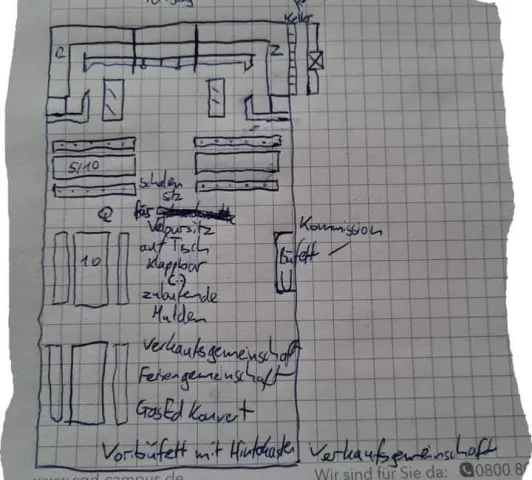 Keller
2
2
5/10
schalen
sitz
Q für
Veloursitz
auf Tisch
klappbar
(:)
zulaufende
Mulden
10
Kommission
Büfett
Verkaufsgemeinschaft
Feriengemeinschaft
GasEd Konvert
Vorbüfett mit Hinterkasten Verkaufsgemeinschaft
www.sgd-campus.de
Wir sind für Sie da: 0800 8